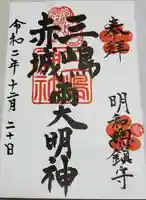 奉拝
三嶋
赤城
両大明神
鎮守
令和二年十二月二十日